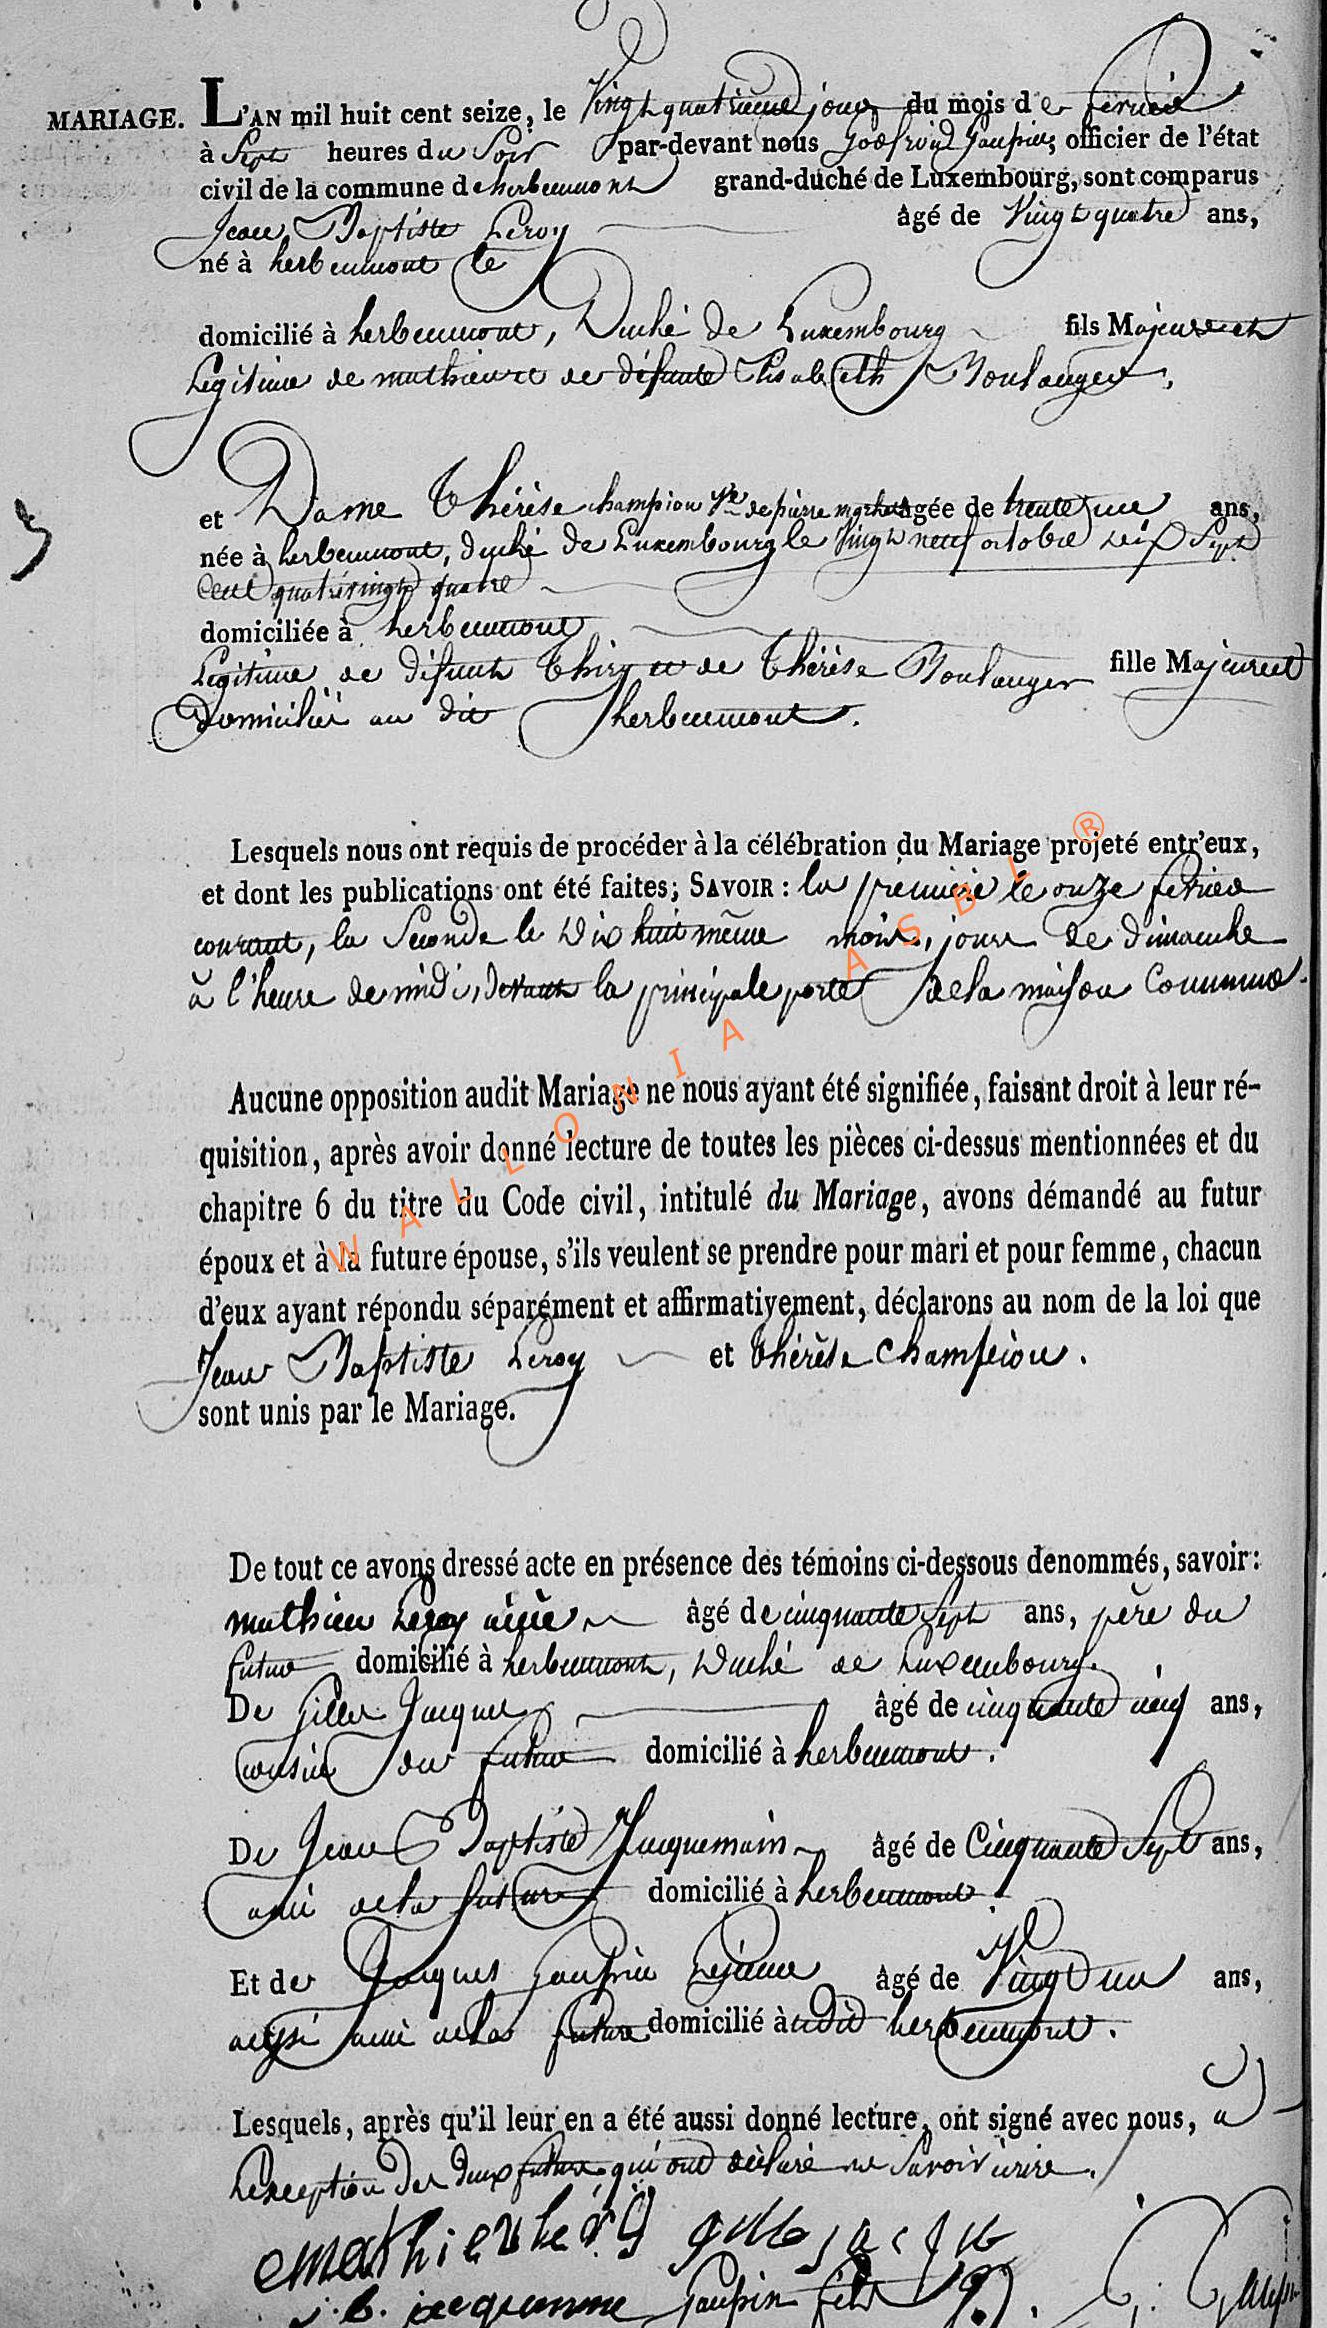 MARIAGE. L'AN mil huit cent seize, le Vingt quatrième jour du mois de fevrier
à Sept heures du Soir par-devant nous Godfroid Gaupin, officier de l'état
civil de la commune de herbeumont grand-duché de Luxembourg, sont comparus
Jean Baptiste Leroy âgé de Vingt quatre ans,
né à herbeumont le
domicilié à herbeumont, Duché de Luxembourg fils Majeur et
Legitime de mathieu et de défunte Elisabeth Boulanger,
et Dame Thérèse champion Ve de pierre âgée de trente une ans,
née à herbeumont, duché de Luxembourg le Vingt neuf octobre dix Sept
Cent quatrevingt quatre
domiciliée à herbeumont
fille Majeure et
Legitime de défunt Thiry et de Thérèse Boulanger
Domiciliés au dit herbeumont.
Lesquels nous ont requis de procéder à la célébration du Mariage projeté entr'eux,
et dont les publications ont été faites; SAVOIR : la première le onze fevrier
courant, la Seconde le Dix huit même mois, jours de dimanche
à l'heure de midi, devant la principale porte de la maison Commune.
Aucune opposition audit Mariage ne nous ayant été signifiée, faisant droit à leur ré-
quisition, après avoir donné lecture de toutes les pièces ci-dessus mentionnées et du
chapitre 6 du titre du Code civil, intitulé du Mariage, avons démandé au futur
époux et à la future épouse, s'ils veulent se prendre pour mari et pour femme, chacun
d'eux ayant répondu séparément et affirmativement, déclarons au nom de la loi que
Jean Baptiste Leroy et thérèse Champion.
sont unis par le Mariage.
De tout ce avons dressé acte en présence des témoins ci-dessous denommés, savoir:
mathieu Leroy ainé âgé de cinquante Sept ans, père du
futur domicilié à herbeumont, Duché de Luxembourg.
De Gilles Jacques âgé de cinquante cinq ans,
cousin du futur domicilié à herbeumont.
De Jean Baptiste Jacquemain âgé de Cinquante Sept ans,
ami de la future domicilié à herbeumont.
Et de Jacques Gaupin Lejeune âgé de Vingt un ans,
aussi ami de la future domicilié à udit herbeumont.
Lesquels, après qu'il leur en a été aussi donné lecture, ont signé avec nous, a
L'exception des deux futurs qui ont déclaré ne Savoir écrire.
Mathieu leroy
j. b. jacquemine Gaupin fils G. Gaupin
WALLONIA ASBL ®